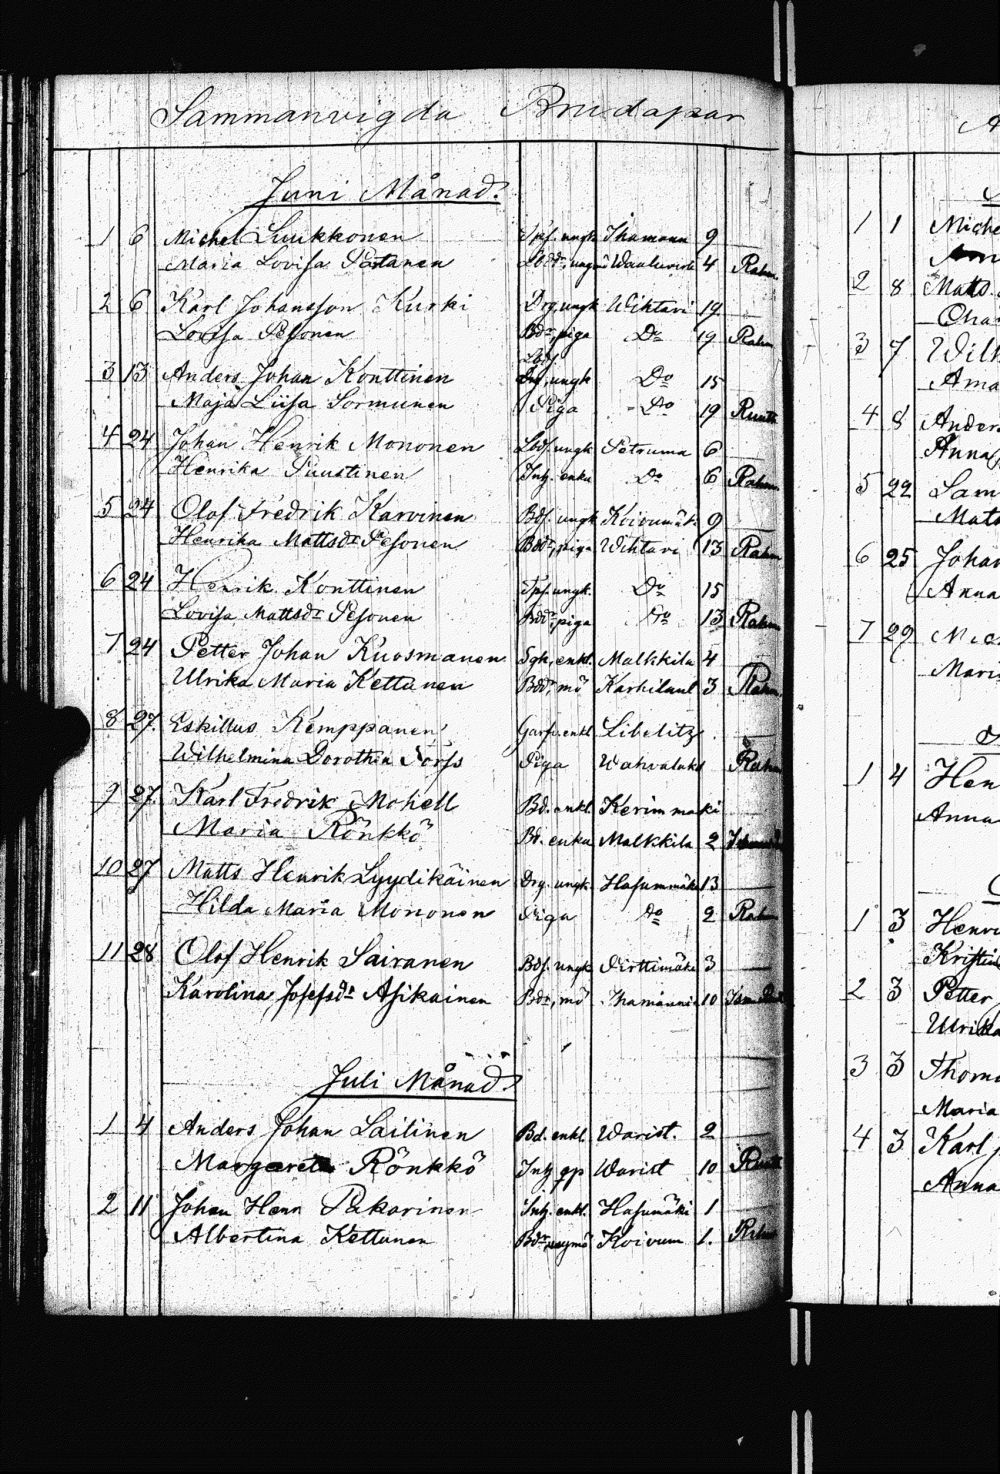 Sammanvigda Brudapar
Juni Månad.
1 6 Michel Suukkonen Spf. ungk Ihamann 9
Maria Lovisa Partanen 4 Rahm
2 6 Karl Johansson Kurki Drg. ungk Wihtari 19
Lovisa Pesonen Bdr, piga Do 19 Rahm
3 13 Anders Johan Konttinen ungk Do 15
Maja Liisa Sormunen Piga Do 19 Ruuth
4 24 Johan Henrik Mononen Lbds. ungk Petruma 6
Henrika Puustinen Inh. enka Do 6 Rahm
5 24 Olof Fredrik Karvinen Bds. ungk Koivumäk. 9
Henrika Mattsdr Pesonen Bddr, piga Wihtari 13 Rahm
6 24 Henrik Konttinen Tpf. ungk. Do 15
Lovisa Mattsdr Pesonen Bddr piga Do 13 Rahm
7 24 Petter Johan Kuosmanen enkl. Malkkila 4
Ulrika Maria Kettunen Bddr, mö Karhilant 3 Rahm
8 27. Eskillus Kemppanen Garfv. enkl Libelitz
Wilhelmina Dorothea Piga Wahvaluks Rahm
9 27. Karl Fredrik Mohell Bd. enkl. Kerimmäki
Maria Rönkkö Bd. enka Malkkila 2
10 27 Matts Henrik Lyydikäinen Drg. ungk. Hasummäki 13
Hilda Maria Mononen Piga Do 2 Rahm
11 28 Olof Henrik Sairanen Bds. ungk Pirttimäki 3
Karolina Josefsdr Asikainen Bdr, mö Ihamanni 10
Juli Månad.
1 4 Anders Johan Laitinen Bd. enkl. Warist. 2
Margareta Rönkkö Inh. Warist 10 Ruuth
2 11 Johan Henr Pakarinen Inh. enkl. Hasumäki 1
Albertina Kettunen Koivum 1. Rahm
1 1 Miche
2 8 Matts
Cha
3 7 Wilh
Ama
4 8 Anders
Anna
5 22 Sam
Mats
6 25 Johan
Anna
7 29
Mari
1 4 Hen
Anna
1 3 Henri
Kristin
2 3 Petter
Ulrika
3 3 Thom
Maria
4 3 Karl
Anna